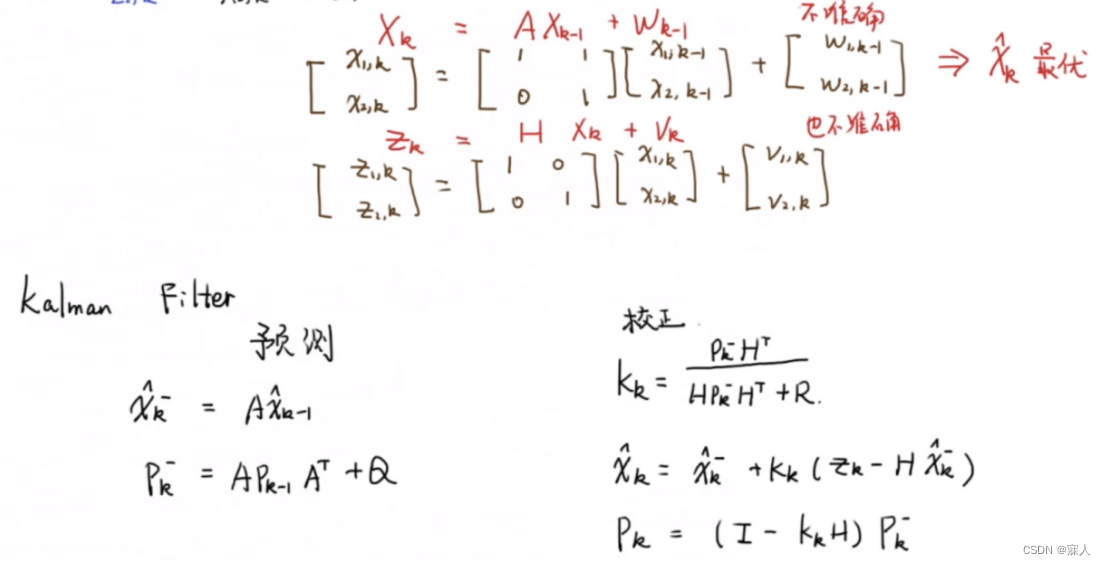 不准确
X_k = A X_{k-1} + W_{k-1}
[x_{1,k} x_{2,k}] = [1 1 0 1][x_{1,k-1} x_{2,k-1}] + [w_{1,k-1} w_{2,k-1}] ⇒ X̂_k 最优
也不准确
Z_k = H X_k + V_k
[z_{1,k} z_{2,k}] = [1 0 0 1][x_{1,k} x_{2,k}] + [v_{1,k} v_{2,k}]
Kalman Filter
预测
x̂_k^- = A x̂_{k-1}
P_k^- = A P_{k-1} A^T + Q
校正
K_k = P_k^- H^T / H P_k^- H^T + R.
x̂_k = x̂_k^- + K_k (z_k - H x̂_k^-)
P_k = (I - K_k H) P_k^-
CSDN @寐人